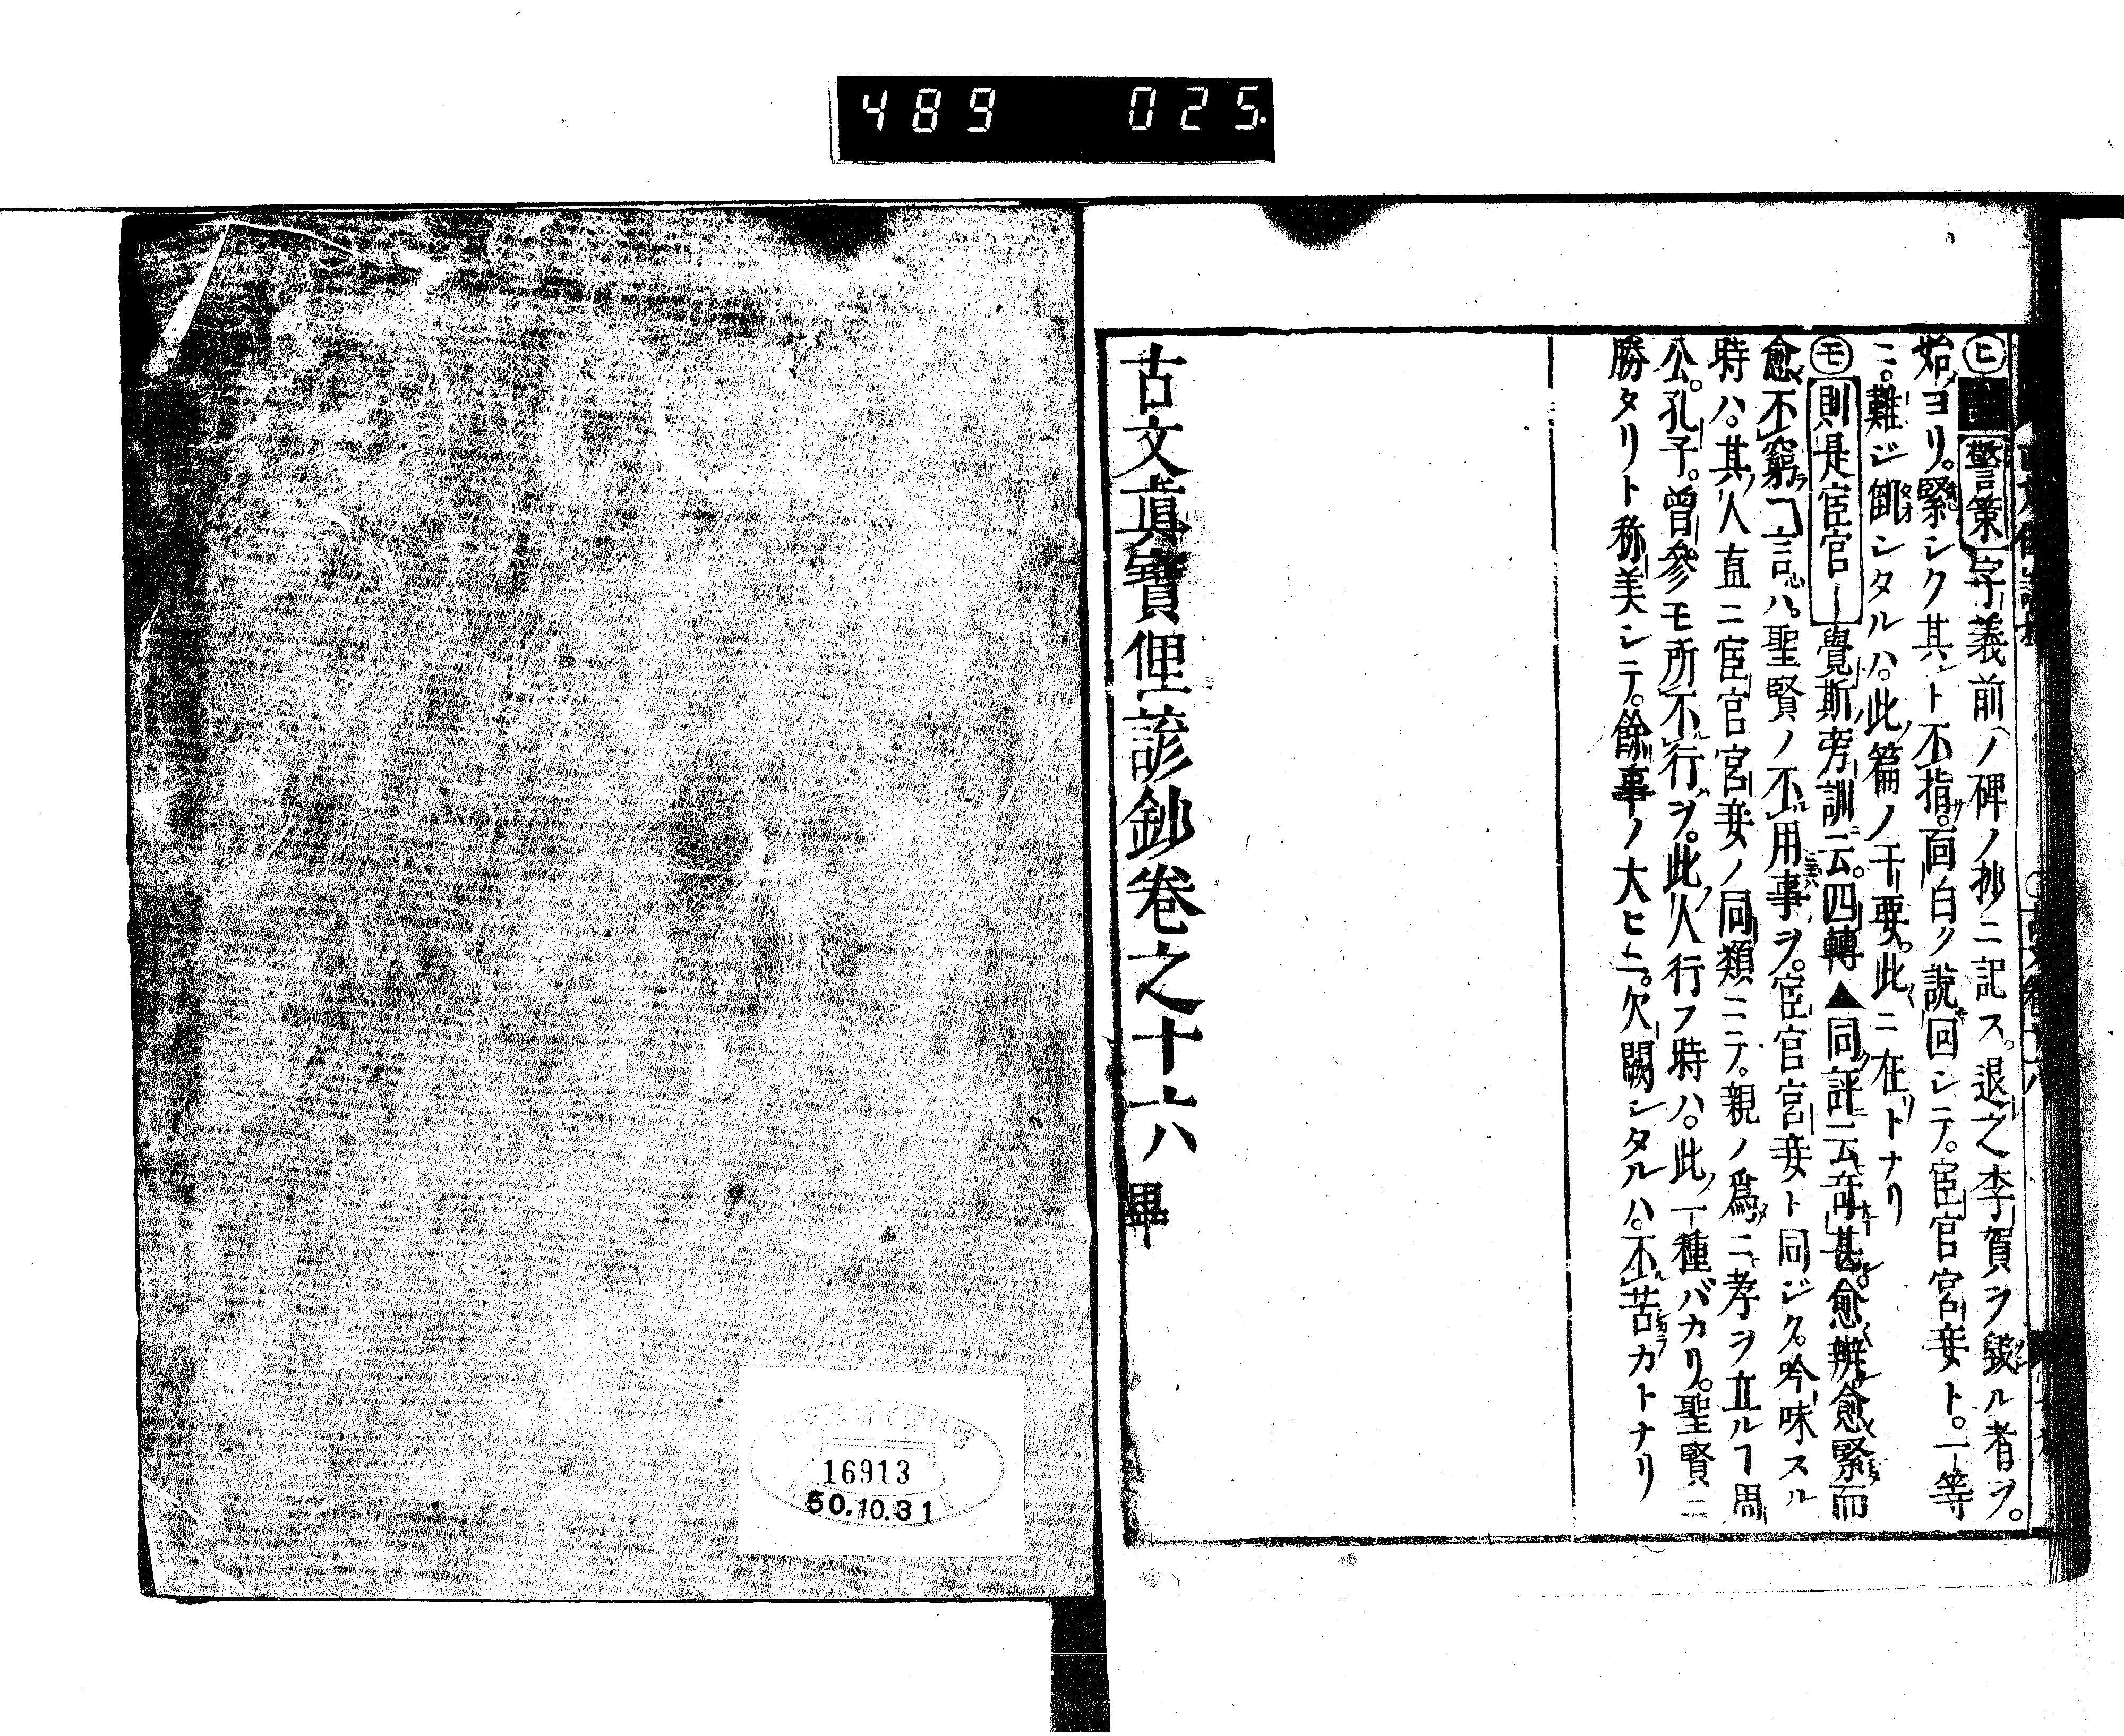 489 025.
㋪警策字義前ノ碑ノ抄ニ記ス。退之李賀ヲ毀ル者ヲ。
始ヨリ。緊シク其ト不指。面白ク説回シテ。宦官宮妾ト。一等
ニ。難ジ倒シタルハ。此篇ノ干要。此ニ在トナリ
㋲則是宦官ー覺斯旁訓云。四轉▲同評云奇甚。愈辨。愈緊而
愈不窮ヿ言ハ。聖賢ノ不用事ヲ。宦官宮妾ト同ジク。吟味スル
時ハ。其人直ニ宦官宮妾ノ同類ニテ。親ノ爲ニ。孝ヲ立ルヿ周
公。孔子。曾參モ所不行ヲ。此人行フ時ハ。此一種バカリ。聖賢ニ
勝タリト称美シテ。餘事ノ大ヒニ。欠闕シタルハ。不苦カトナリ
古文眞寶俚諺鈔卷之十六 畢
16913
50.10.31